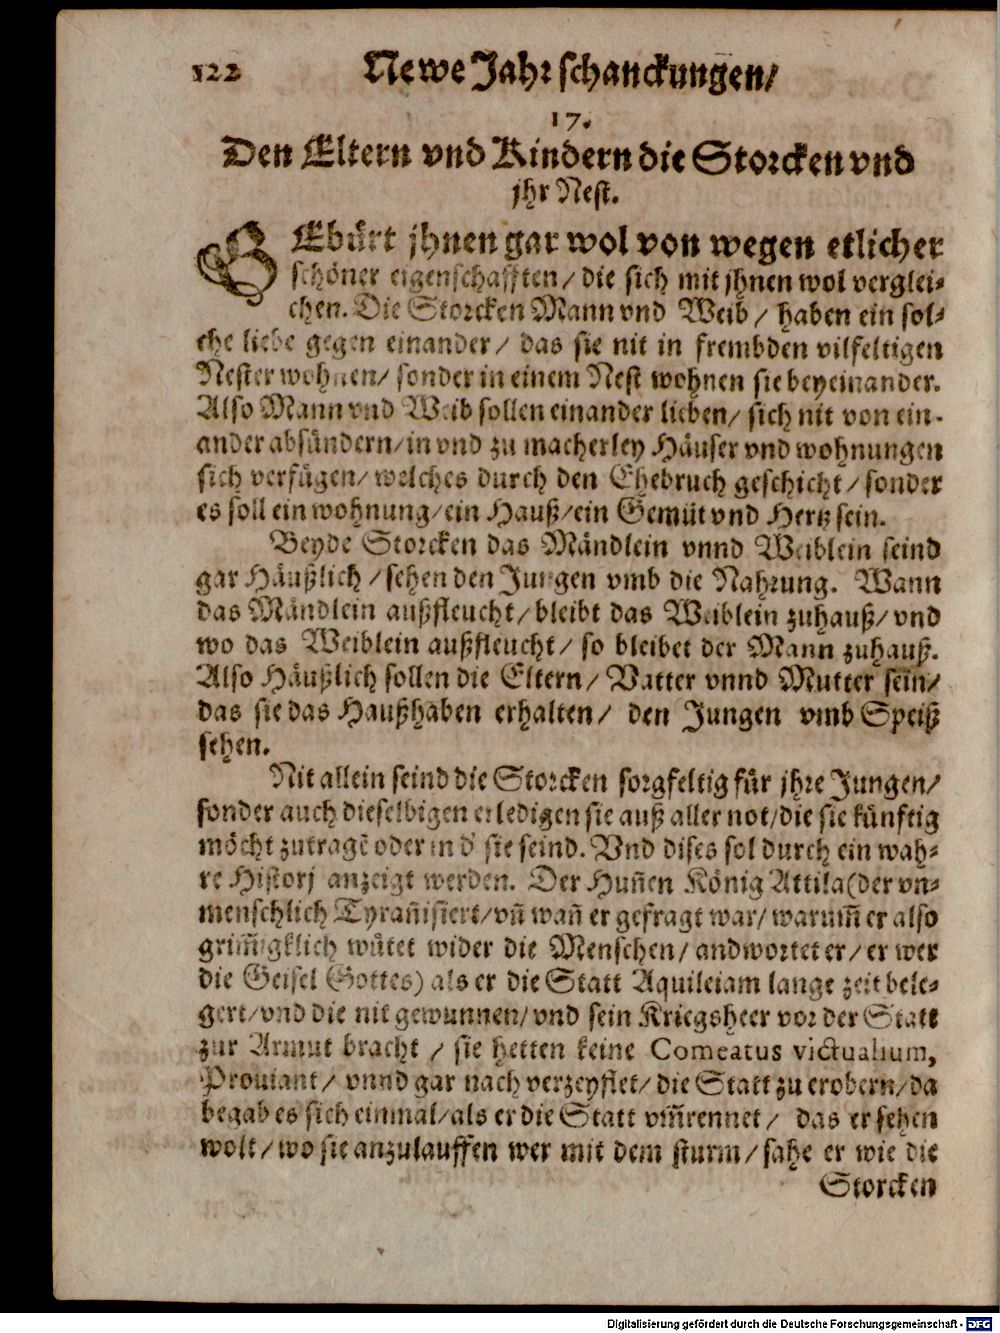 122 Newe Jahrschanckungen/
17.
Den Eltern vnd Kindern die Storcken vnd
jhr Nest.
GEbürt jhnen gar wol von wegen etlicher
schöner eigenschafften/ die sich mit jhnen wol verglei-
chen. Die Storcken Mann vnd Weib/ haben ein sol-
che liebe gegen einander/ das sie nit in frembden vilfeltigen
Nester wohnen/ sonder in einem Nest wohnen sie beyeinander.
Also Mann vnd Weib sollen einander lieben/ sich nit von ein-
ander absündern/ in vnd zu macherley Häuser vnd wohnungen
sich verfügen/ welches durch den Ehebruch geschicht/ sonder
es soll ein wohnung/ ein Hauß/ ein Gemüt vnd Hertz sein.
Beyde Storcken das Mändlein vnnd Weiblein seind
gar Häußlich/ sehen den Jungen vmb die Nahrung. Wann
das Mändlein außfleucht/ bleibt das Weiblein zuhauß/ vnd
wo das Weiblein außfleucht/ so bleibet der Mann zuhauß.
Also Häußlich sollen die Eltern/ Vatter vnnd Mutter sein/
das sie das Haußhaben erhalten/ den Jungen vmb Speiß
sehen.
Nit allein seind die Storcken sorgfeltig für jhre Jungen/
sonder auch dieselbigen erledigen sie auß aller not/ die sie künftig
möcht zutragẽ oder in d' sie seind. Vnd dises sol durch ein wah-
re Historj anzeigt werden. Der Huñen König Attila (der vn-
menschlich Tyrañisiert/ vñ wañ er gefragt war/ warum̃ er also
grim̃igklich wütet wider die Menschen/ andwortet er/ er wer
die Geisel Gottes) als er die Statt Aquileiam lange zeit bele-
gert/ vnd die nit gewunnen/ vnd sein Kriegsheer vor der Statt
zur Armut bracht/ sie hetten keine Comeatus victualium,
Prouiant/ vnnd gar nach verzeyflet/ die Statt zu erobern/ da
begab es sich einmal/ als er die Statt vm̃rennet/ das er sehen
wolt/ wo sie anzulauffen wer mit dem sturm/ sahe er wie die
Storcken
Digitalisierung gefördert durch die Deutsche Forschungsgemeinschaft - DFG